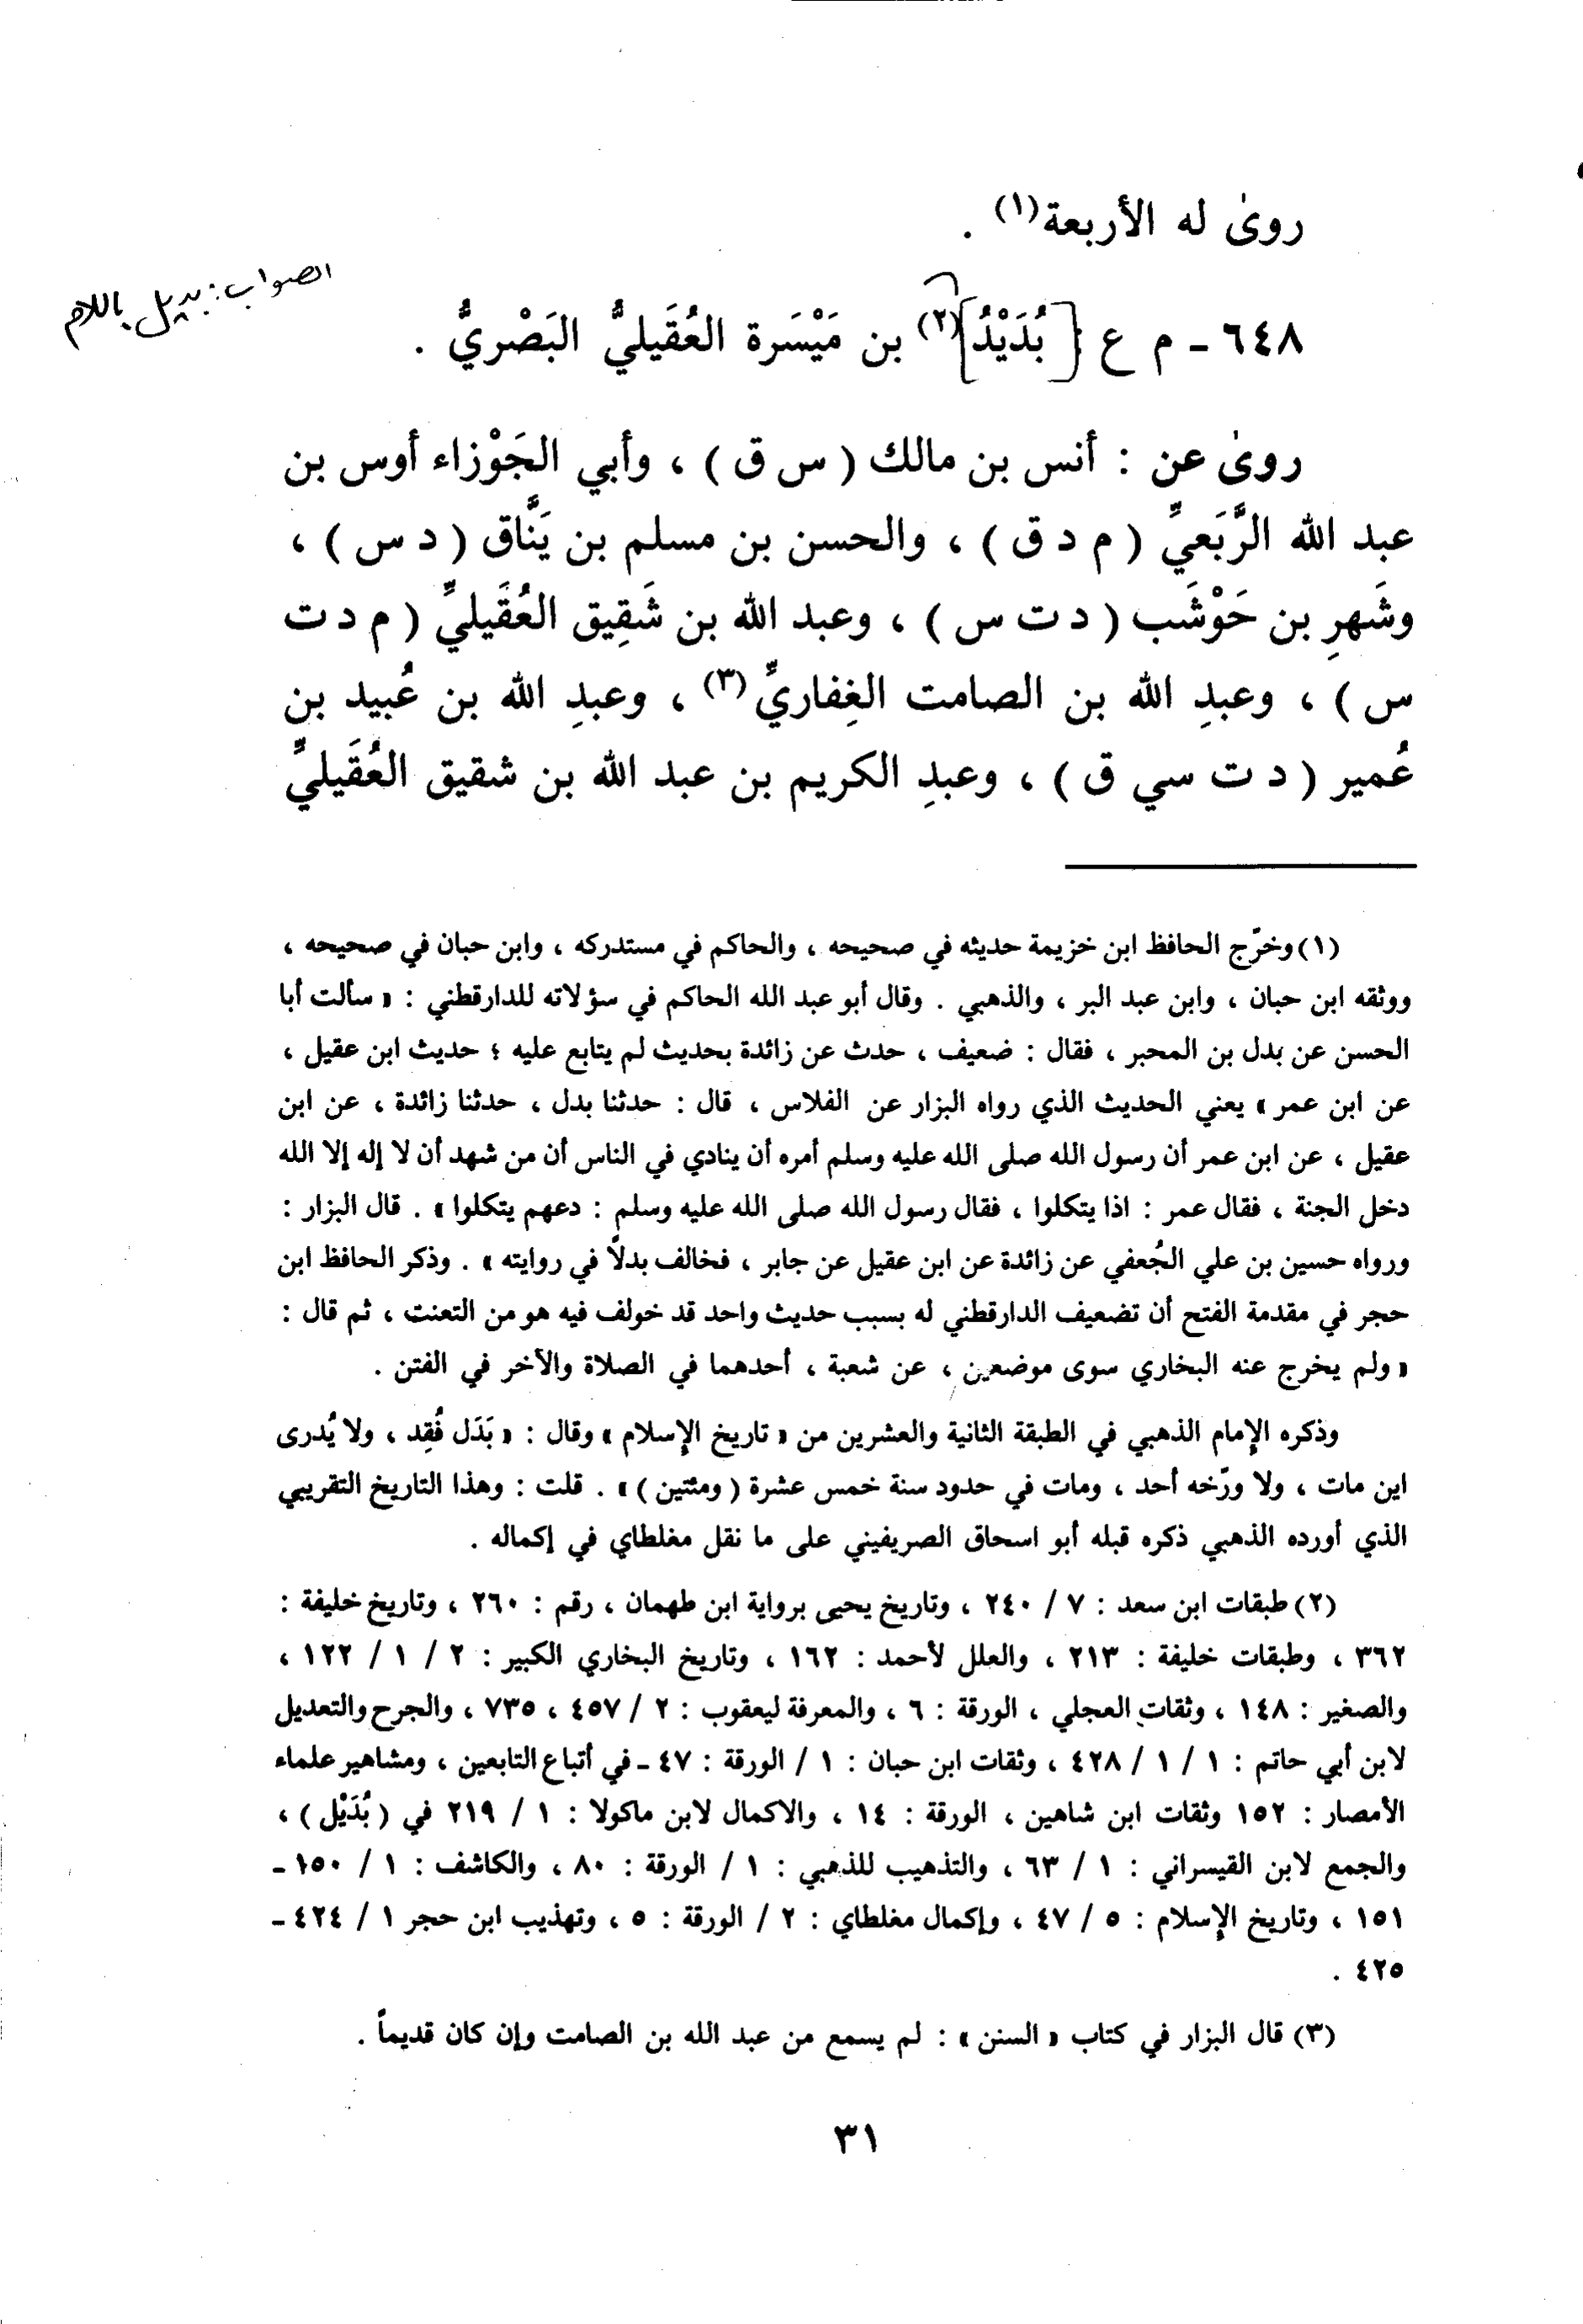 روىٰ له الأربعة(١) .
الصواب : بديل باللام
٦٤٨ - م ع [ بُدَيْدُ ](٢) بن مَيْسَرة العُقَيليُّ البَصْريُّ .
روىٰ عن : أنس بن مالك ( س ق ) ، وأبي الجَوْزاء أوس بن
عبد الله الرَّبَعيِّ ( م د ق ) ، والحسن بن مسلم بن يَنَّاق ( د س ) ،
وشَهرِ بن حَوْشَب ( د ت س ) ، وعبد الله بن شَقِيق العُقَيليِّ ( م د ت
س ) ، وعبدِ الله بن الصامت الغِفاريِّ(٣) ، وعبدِ الله بن عُبيد بن
عُمير ( د ت سي ق ) ، وعبدِ الكريم بن عبد الله بن شقيق العُقَيليِّ
(١) وخرّج الحافظ ابن خزيمة حديثه في صحيحه ، والحاكم في مستدركه ، وابن حبان في صحيحه ،
ووثقه ابن حبان ، وابن عبد البر ، والذهبي . وقال أبو عبد الله الحاكم في سؤلاته للدارقطني : « سألت أبا
الحسن عن بدل بن المحبر ، فقال : ضعيف ، حدث عن زائدة بحديث لم يتابع عليه ؛ حديث ابن عقيل ،
عن ابن عمر » يعني الحديث الذي رواه البزار عن الفلاس ، قال : حدثنا بدل ، حدثنا زائدة ، عن ابن
عقيل ، عن ابن عمر أن رسول الله صلى الله عليه وسلم أمره أن ينادي في الناس أن من شهد أن لا إله إلا الله
دخل الجنة ، فقال عمر : اذا يتكلوا ، فقال رسول الله صلى الله عليه وسلم : دعهم يتكلوا » . قال البزار :
ورواه حسين بن علي الجُعفي عن زائدة عن ابن عقيل عن جابر ، فخالف بدلاً في روايته » . وذكر الحافظ ابن
حجر في مقدمة الفتح أن تضعيف الدارقطني له بسبب حديث واحد قد خولف فيه هو من التعنت ، ثم قال :
« ولم يخرج عنه البخاري سوى موضعين ، عن شعبة ، أحدهما في الصلاة والآخر في الفتن .
وذكره الإمام الذهبي في الطبقة الثانية والعشرين من « تاريخ الإسلام » وقال : « بَدَل فُقِد ، ولا يُدرى
اين مات ، ولا ورّخه أحد ، ومات في حدود سنة خمس عشرة ( ومئتين ) » . قلت : وهذا التاريخ التقريبي
الذي أورده الذهبي ذكره قبله أبو اسحاق الصريفيني على ما نقل مغلطاي في إكماله .
(٢) طبقات ابن سعد : ٧ / ٢٤٠ ، وتاريخ يحيى برواية ابن طهمان ، رقم : ٢٦٠ ، وتاريخ خليفة :
٣٦٢ ، وطبقات خليفة : ٢١٣ ، والعلل لأحمد : ١٦٢ ، وتاريخ البخاري الكبير : ٢ / ١ / ١٢٢ ،
والصغير : ١٤٨ ، وثقات العجلي ، الورقة : ٦ ، والمعرفة ليعقوب : ٢ / ٤٥٧ ، ٧٣٥ ، والجرح والتعديل
لابن أبي حاتم : ١ / ١ / ٤٢٨ ، وثقات ابن حبان : ١ / الورقة : ٤٧ - في أتباع التابعين ، ومشاهير علماء
الأمصار : ١٥٢ وثقات ابن شاهين ، الورقة : ١٤ ، والاكمال لابن ماكولا : ١ / ٢١٩ في ( بُدَيْل ) ،
والجمع لابن القيسراني : ١ / ٦٣ ، والتذهيب للذهبي : ١ / الورقة : ٨٠ ، والكاشف : ١ / ١٥٠ -
١٥١ ، وتاريخ الإسلام : ٥ / ٤٧ ، وإكمال مغلطاي : ٢ / الورقة : ٥ ، وتهذيب ابن حجر ١ / ٤٢٤ -
٤٢٥ .
(٣) قال البزار في كتاب « السنن » : لم يسمع من عبد الله بن الصامت وإن كان قديماً .
٣١